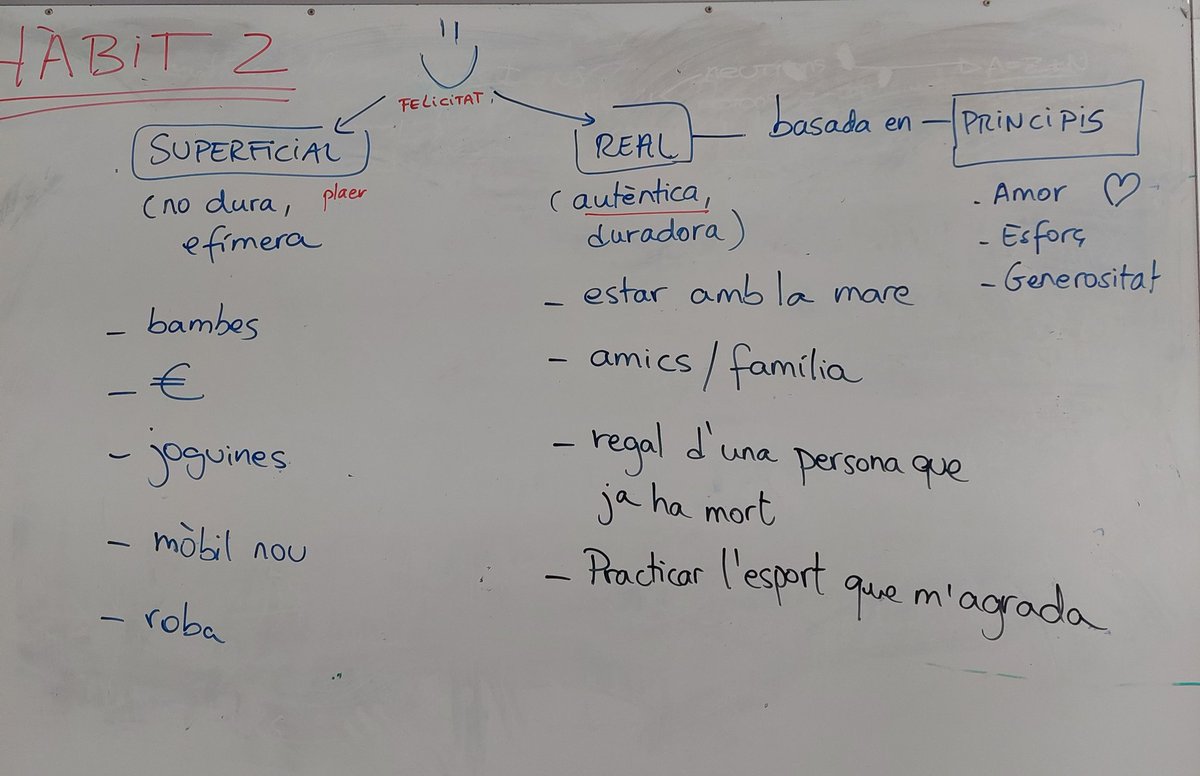 HÀBIT 2
FELICITAT
SUPERFICIAL
(no dura, plaer
efímera
- bambes
- €
- joguines
- mòbil nou
- roba
REAL — basada en — PRINCIPIS
(autèntica,
duradora)
- estar amb la mare
- amics / família
- regal d'una persona que
ja ha mort
- Practicar l'esport que m'agrada
. Amor ♡
- Esforç
- Generositat